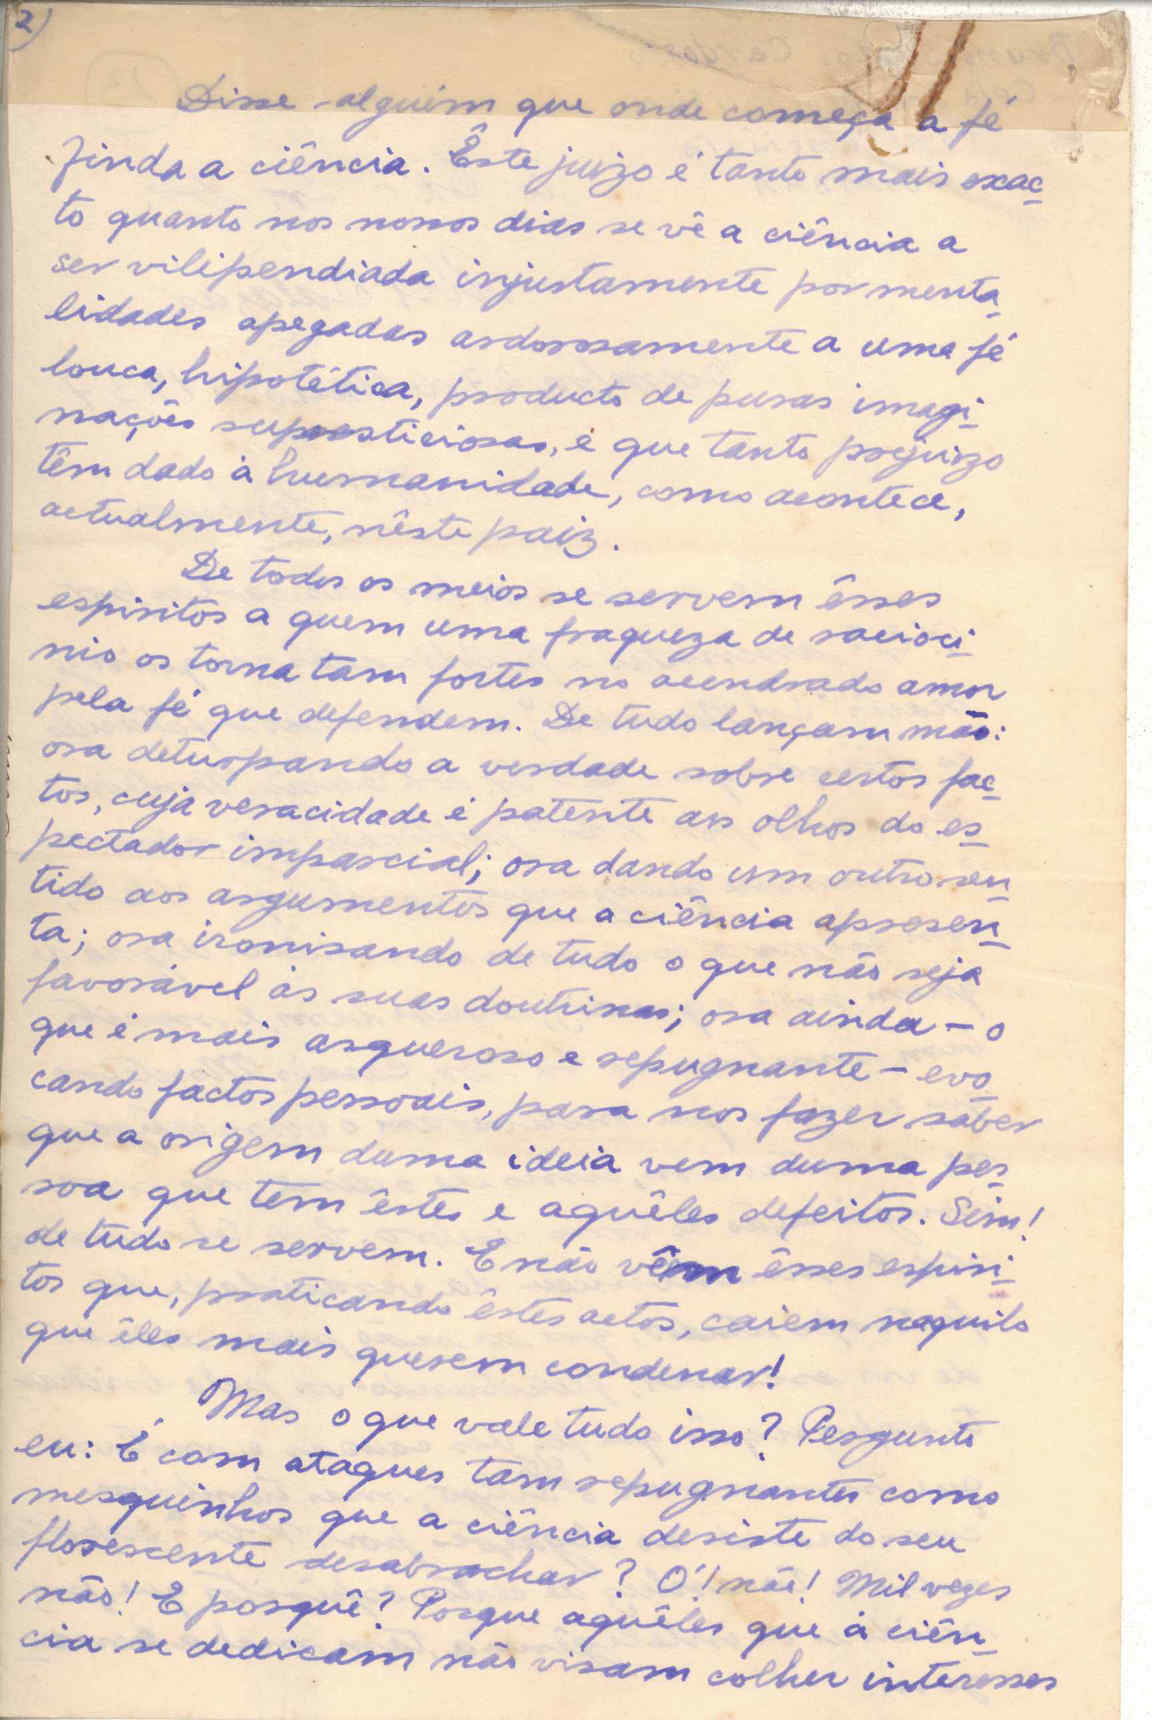 2)
Disse alguém que onde começa a fé
finda a ciência. Êste juizo é tanto mais exac-
to quanto nos nossos dias se vê a ciência a
ser vilipendiada injustamente por menta-
lidades apegadas ardorosamente a uma fé
louca, hipotética, producto de puras imagi-
nações supersticiosas, e que tanto prejuizo
têm dado à humanidade, como acontece,
actualmente, nêste paiz.
De todos os meios se servem êsses
espiritos a quem uma fraqueza de racioci-
nio os torna tam fortes no acendrado amor
pela fé que defendem. De tudo lançam mão:
ora deturpando a verdade sobre certos fac-
tos, cuja veracidade é patente aos olhos do es-
pectador imparcial; ora dando um outro sen-
tido aos argumentos que a ciência apresen-
ta; ora ironisando de tudo o que não seja
favorável às suas doutrinas; ora ainda - o
que é mais asqueroso e repugnante - evo-
cando factos pessoais, para nos fazer saber
que a origem duma ideia vem duma pes-
soa que tem êstes e aquêles defeitos. Sim!
de tudo se servem. E não vêem êsses espiri-
tos que, praticando êstes actos, caiem naquilo
que êles mais querem condenar!
Mas o que vale tudo isso? Pergunto
eu: É com ataques tam repugnantes como
mesquinhos que a ciência desiste do seu
florescente desabrochar? Ó! não! Mil vezes
não! E porquê? Porque aquêles que à ciên-
cia se dedicam não visam colher interesses